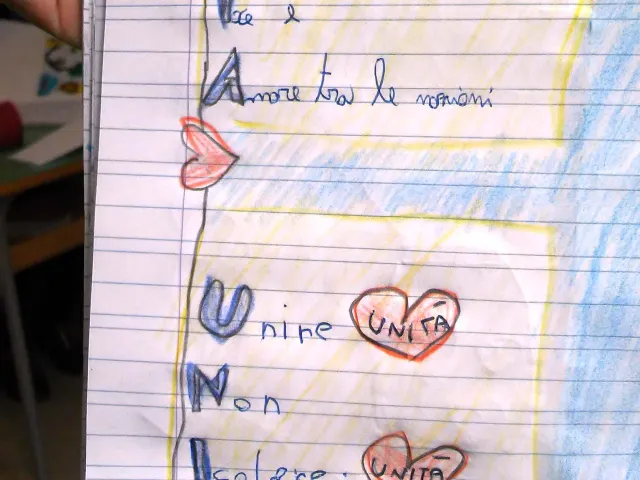 Amore tra le nazioni
Unire UNITÀ
Non
Isolare. UNITÀ